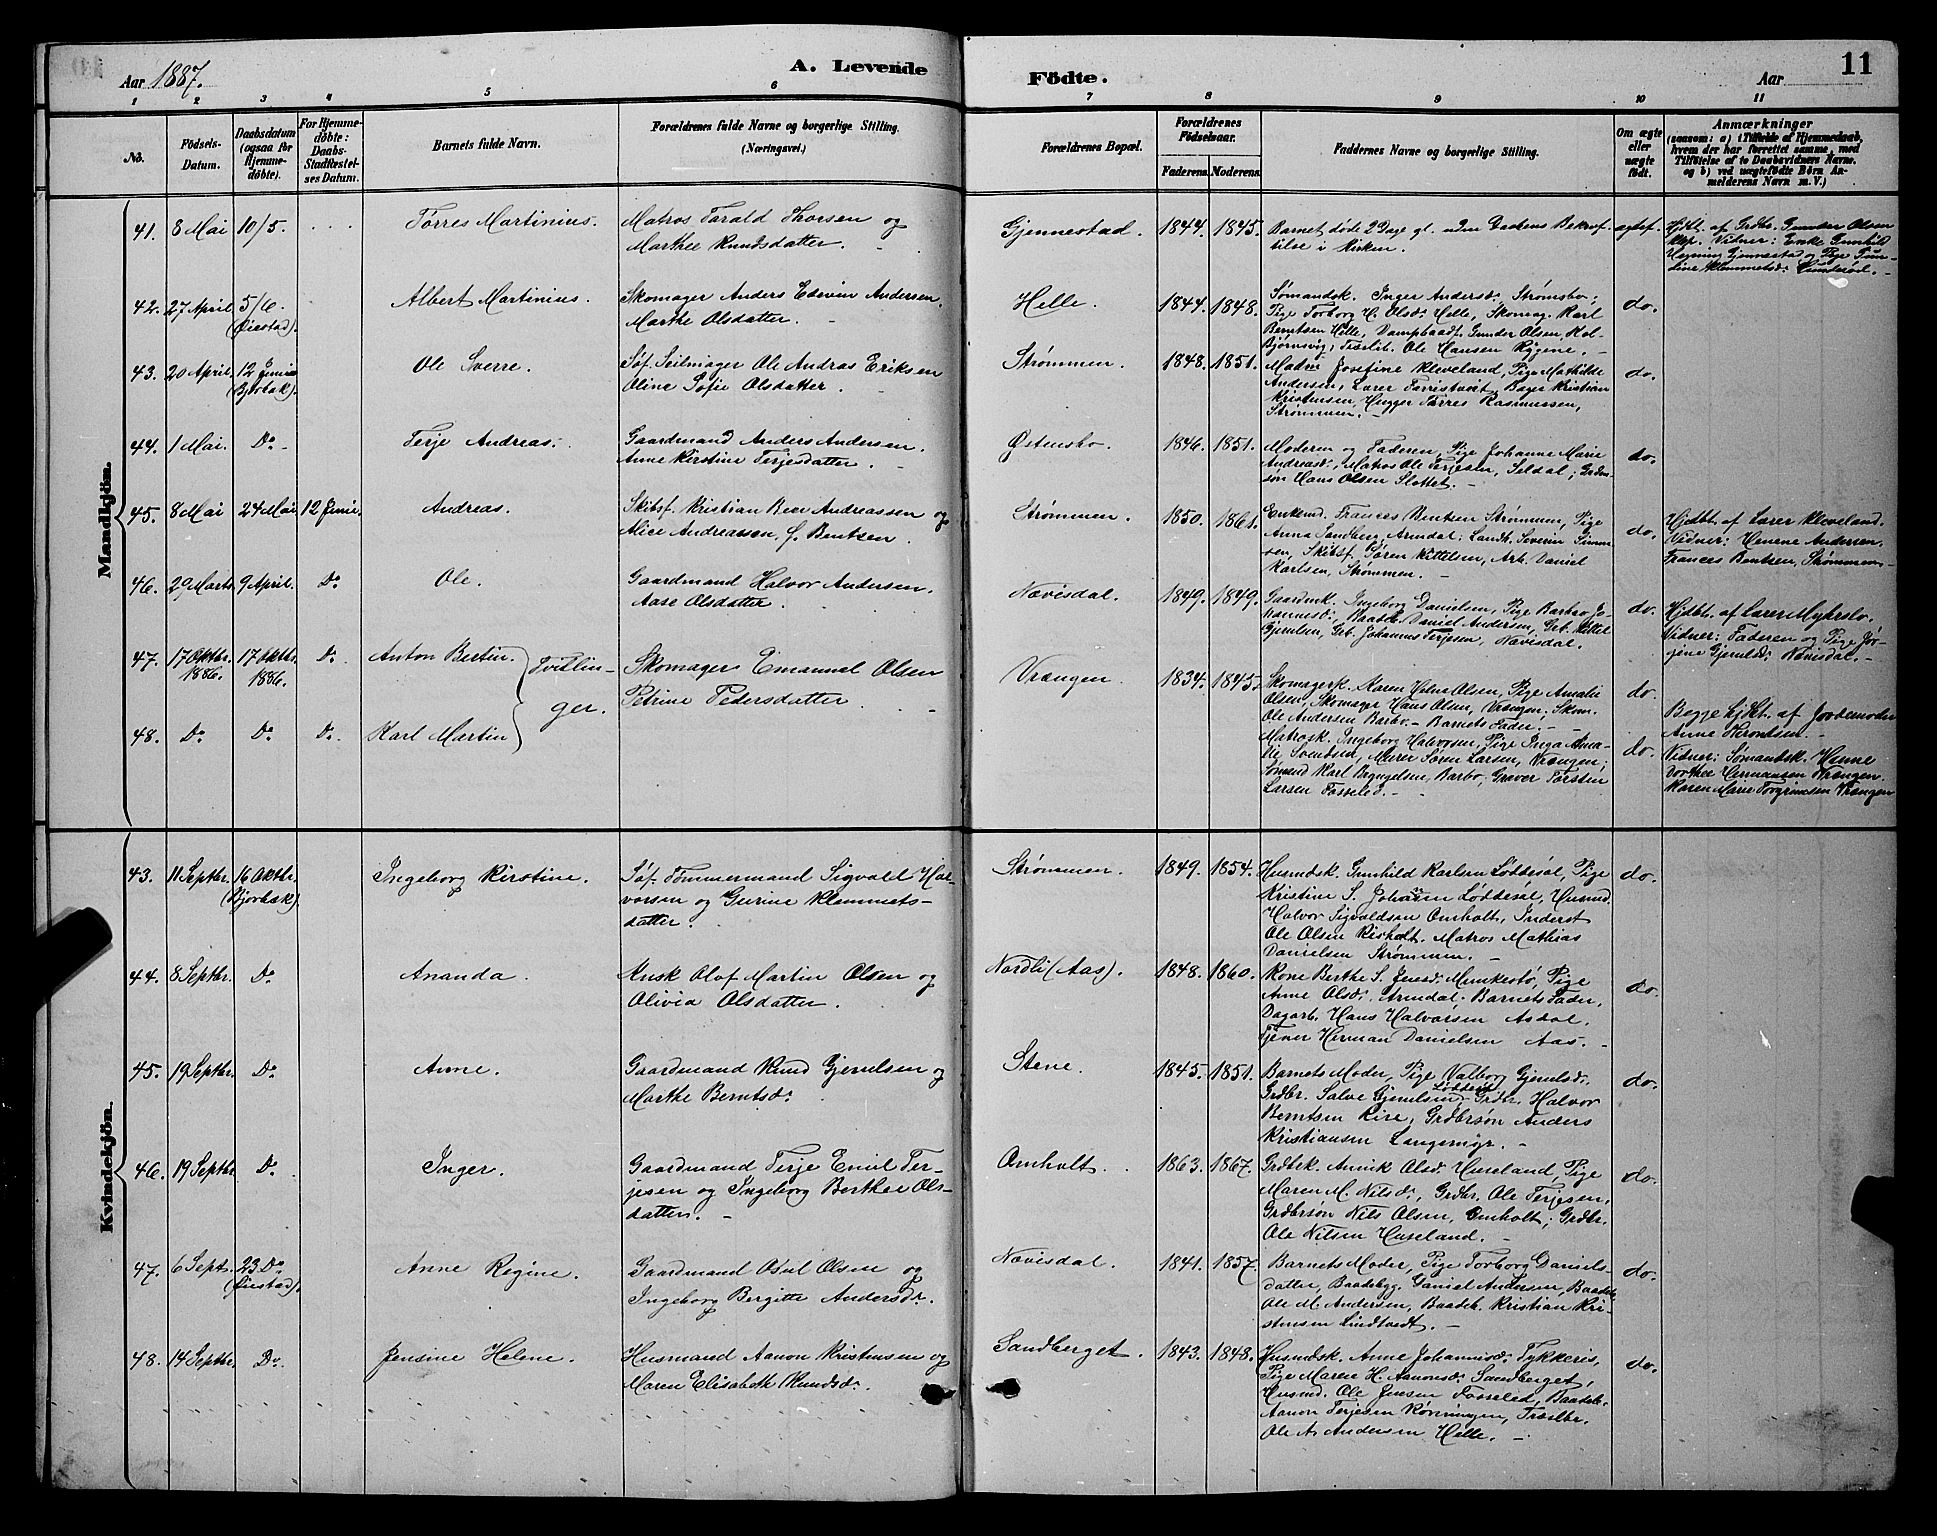 Aar 1887. A. Levende Födte. Aar 11
1 2 3 4 5 6 7 8 9 10 11
No.
Födsels-Datum.
Daabsdatum (ogsaa for Hjemme-döbte).
For Hjemme-döbte: Daabs-Stadfæstel-ses Datum.
Barnets fulde Navn.
Forældrenes fulde Navne og borgerlige Stilling.
(Næringsvei.)
Forældrenes Bopæl.
Forældrenes Födselsaar.
Faderens. Moderens.
Faddernes Navne og borgerlige Stilling.
Om ægte eller uægte födt.
Anmærkninger
(saasom: a) i Tilfælde af Hjemmedaab,
hvem der har forrettet samme, med
Tilföielse af to Daabsvidners Navne.
og b) ved uægtefödte Börn An-
melderens Navn m. V.)
Mandkjön.
41. 8 Mai 10/5. Tørres Martinius.
Matros Tarald Thorsen og
Marthee Knudsdatter.
Gjennestad. 1844. 1845.
Barnet døde 2 Dage gl. uden Daabens Bekræf-
telse i Kirken.
ægtef.
Hjdbt. af Grdbr. Gunder Olsen
Vidner: Enke Gunhild
42. 27 April. 5/6. (Øiestad). Albert Martinius.
Skomager Anders Edvin Andersen.
Marthe Olsdatter.
Helle. 1844. 1848.
Sømandsk. Inger Andersd. Strømsbo;
Pige Torborg H. Olsd. Helle, Skomag. Karl
Berntsen Helle, Dampbaadf. Gunder Olsen Kol-
Bjørnsvig, Træslit. Ole Hansen Rygene.
do.
43. 20 April. 12 Junie (Bjorbæk). Ole Sverre.
Søf. Seilmager Ole Andras Eriksen
Oline Sofie Olsdatter.
Strømmen. 1848. 1851.
Madm Josefine Kleveland, Pige Mathilde
Andersen, Lærer Tarristveit, Bager Kristian
Kristensen, Hugger Tørres Rasmussen,
Strømmen.
do.
44. 1 Mai. Do Terje Andreas.
Gaardmand Anders Andersen.
Anne Kirstine Terjesdatter.
Østensbo. 1846. 1851.
Moderen og Faderen, Pige Johanne Marie
Andreasd., Matros Ole Terjesen, Seldal; Grdm-
søn Hans Olsen Slottet.
do.
45. 8 Mai 24 Mai 12 Junie. Andreas.
Skibsf. Kristian Reve Andreassen og
Alice Andreassen, f. Bentsen.
Strømmen. 1850. 1861.
Enkemd. Frances Bentsen Strømmen, Pige
Anna Sandberg, Arendal; Landh. Severin Simon-
sen, Skibsf. Søren Kittelsen, Arb. Daniel
Karlsen, Strømmen.
do.
Hjdbt. af Lærer Kleveland.
Vidner: Henene Andersen.
Frances Bentsen, Strømmen.
46. 29 Marts 9 April. Do Ole.
Gaardmand Halvor Andersen.
Aase Olsdatter.
Nævisdal. 1849. 1849.
Gaardmk. Ingeborg Danielsen, Pige Barbro Jo-
hannesd., Baadb. Daniel Andersen, Gbt. Kittel
Gjerulsen, Gbt. Johannes Terjesen, Nævisdal.
do.
Hjdbt. af Lærer Myhrslo.
Vidner: Faderen og Pige Jør-
gine Gjerulsd. Nævisdal.
47. 17 Oktbr. 1886. 17 Oktbr. 1886. Do Anton Bertin. Tvillin-
ger.
Skomager Emanuel Olsen
Petrine Pedersdatter.
Vrængen. 1834. 1845.
Skomagerk. Karen Helene Olsen, Pige Amalie
Olsen, Skomager Hans Olsen, Vrængen. Skom.
Ole Andersen Barbo. Barnets Fader.
do.
Begge hjdbt. af Jordemoder
Anne
48. Do Do Do Karl Martin
Matrosk. Ingeborg Halvorsen, Pige Inga Ama-
lie Svendsen, Murer Søren Larsen, Vrængen;
Sømand Karl Bogugelsen, Barbo, Graver Torsten
Larsen Fosseled.
do.
Vidner: Sømandsk. Hanne
Dorthee Hermansen Vrængen.
Karen Marie Torgrimsen Vrængen
Kvindekjön.
43. 11 Septbr. 16 Oktbr. (Bjorbæk). Ingeborg Kirstine.
Søf. Tømmermand Sigvald Hal-
vorsen og Gurine Klemmets-
datter.
Strømmen. 1849. 1854.
Husmdsk. Gunhild Karlsen Løddesøl, Pige
Kristine S. Johansen Løddesøl, Husmd.
Halvor Sigvaldsen Omholt, Inderst
Ole Olsen Risholt. Matros Mathias
Danielsen Strømmen.
do.
44. 8 Septbr. Do Ananda.
Husk Olof Martin Olsen og
Olivia Olsdatter.
Nordli (Aas). 1848. 1860.
Kone Berthe S. Jensd. Munkestø, Pige
Anne Olsd. Arendal. Barnets Fader,
Dagarb. Hans Halvorsen Asdal.
Tjener Herman Danielsen Aas.
do.
45. 19 Septbr. Do Anne.
Gaardmand Knud Gjerulsen og
Marthe Berntsd.
Stene. 1845. 1851.
Barnets Moder, Pige Valborg Gjerulsd.
Grdbr. Salve Gjerulsen Løddesøl, Grdbr. Halvor
Berntsen Rise, Grdbrsøn Anders
Kristiansen Langemyr.
do.
46. 19 Septbr. Do Inger.
Gaardmand Terje Emil Ter-
jesen og Ingeborg Berthee Ols-
datter.
Omholt. 1863. 1867.
Grdbsk. Annik Olsd. Huseland, Pige
Maren M. Nilsd., Grdbr. Ole Terjesen,
Grdbrsøn Nils Olsen, Omholt; Grdbr.
Ole Nilsen Huseland.
do.
47. 6 Sept. 23 Do (Øiestad). Anne Regine.
Gaardmand Osul Olsen og
Ingeborg Bergitte Andersdr.
Nævisdal. 1841. 1857.
Barnets Moder, Pige Torborg Daniels-
datter, Baadebyg. Daniel Andersen, Baadeb.
Ole M. Andersen, Baadeb. Kristian Kri-
stensen Lindtvedt.
do.
48. 14 Septbr. Do. Jensine Helene.
Husmand Aanon Kristensen og
Maren Elisabeth Knudsdr.
Sandberget. 1843. 1848.
Husmdsk. Anne Johannesd. Tykkeris,
Pige Maren H. Aanonsd. Sandberget,
Husmd. Ole Jensen Fosseled, Baadeb.
Aanon Terjesen Røvningen, Træslbr.
Ole A. Andersen Helle.
do.